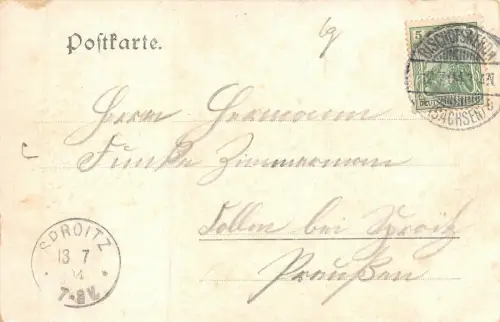 Postkarte.
5
BISCHOFSWERDA
(SACHSEN)
Herrn Hermann
Funke Zimmermann
Collm bei Sproitz
Preußen
SPROITZ
13 7
7-8V.